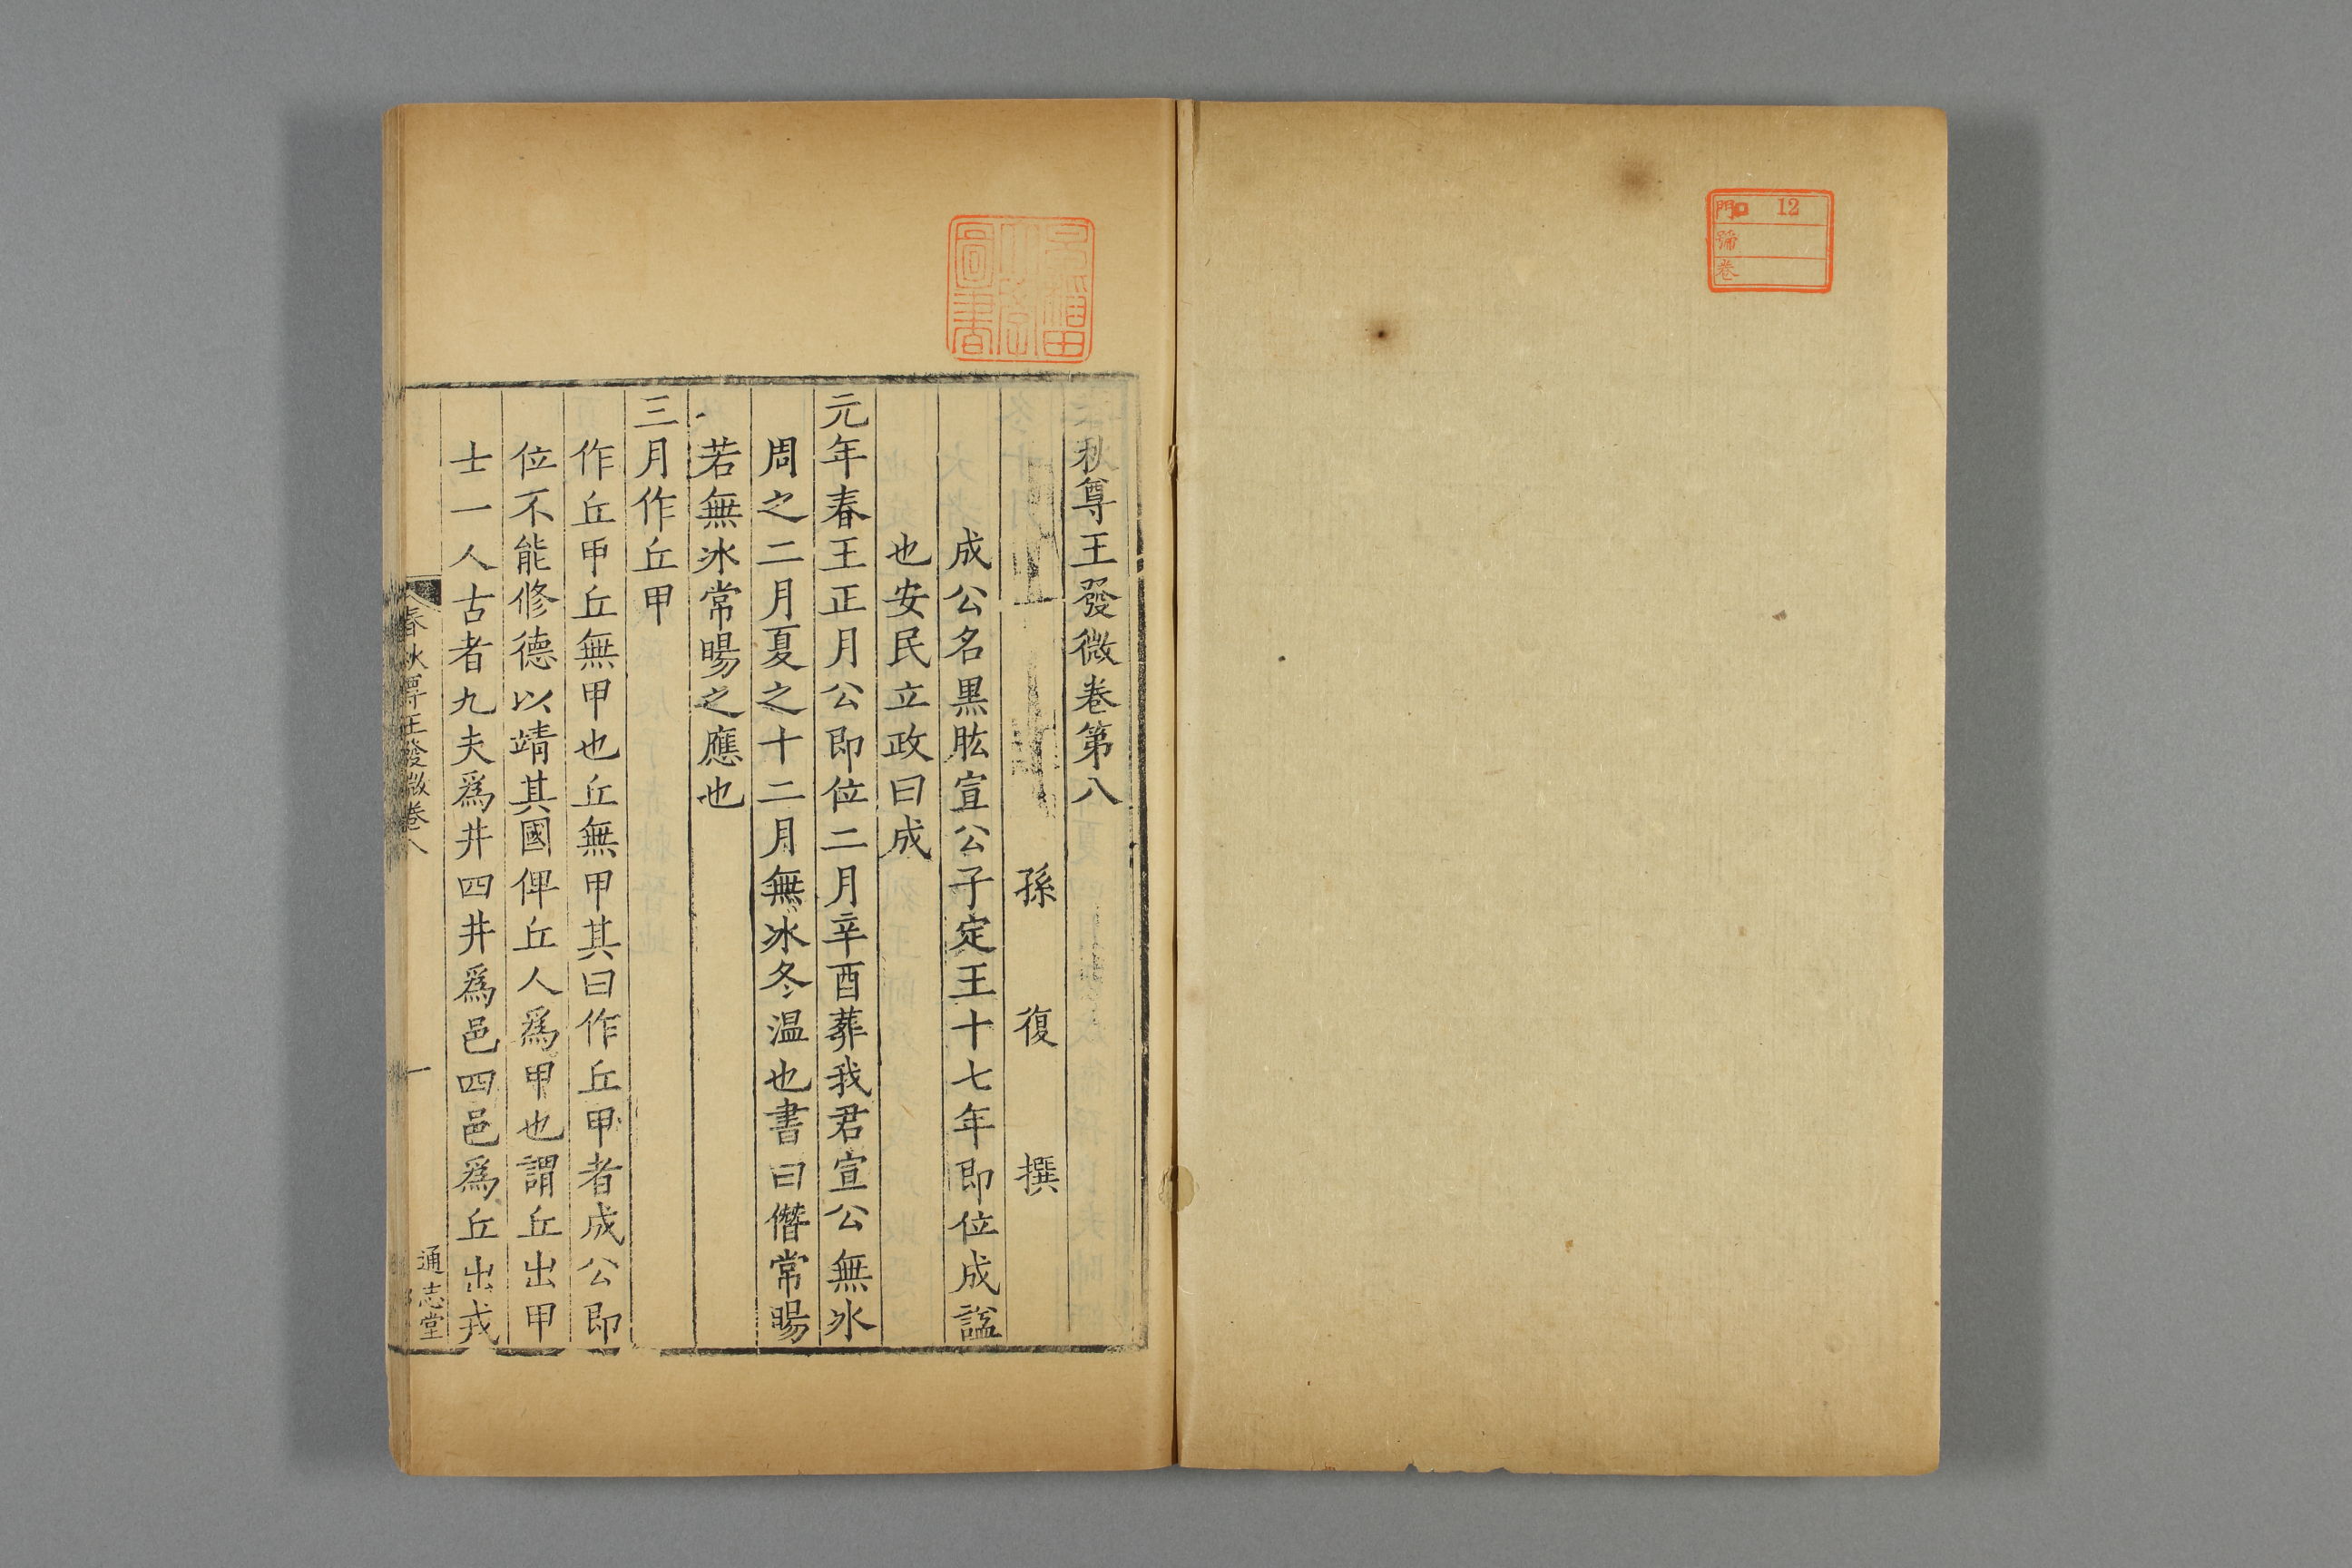 門 12
號
卷
秋尊王發微卷第八
孫 復 撰
成公名黒肱宣公子定王十七年即位成諡
也安民立政曰成
元年春王正月公即位二月辛酉葬我君宣公無冰
周之二月夏之十二月無冰冬温也書曰僭常暘
若無冰常暘之應也
三月作丘甲
作丘甲丘無甲也丘無甲其曰作丘甲者成公即
位不能修德以靖其國俾丘人爲甲也謂丘出甲
士一人古者九夫爲井四井爲邑四邑爲丘出戎
春秋尊王發微卷八
一
通志堂